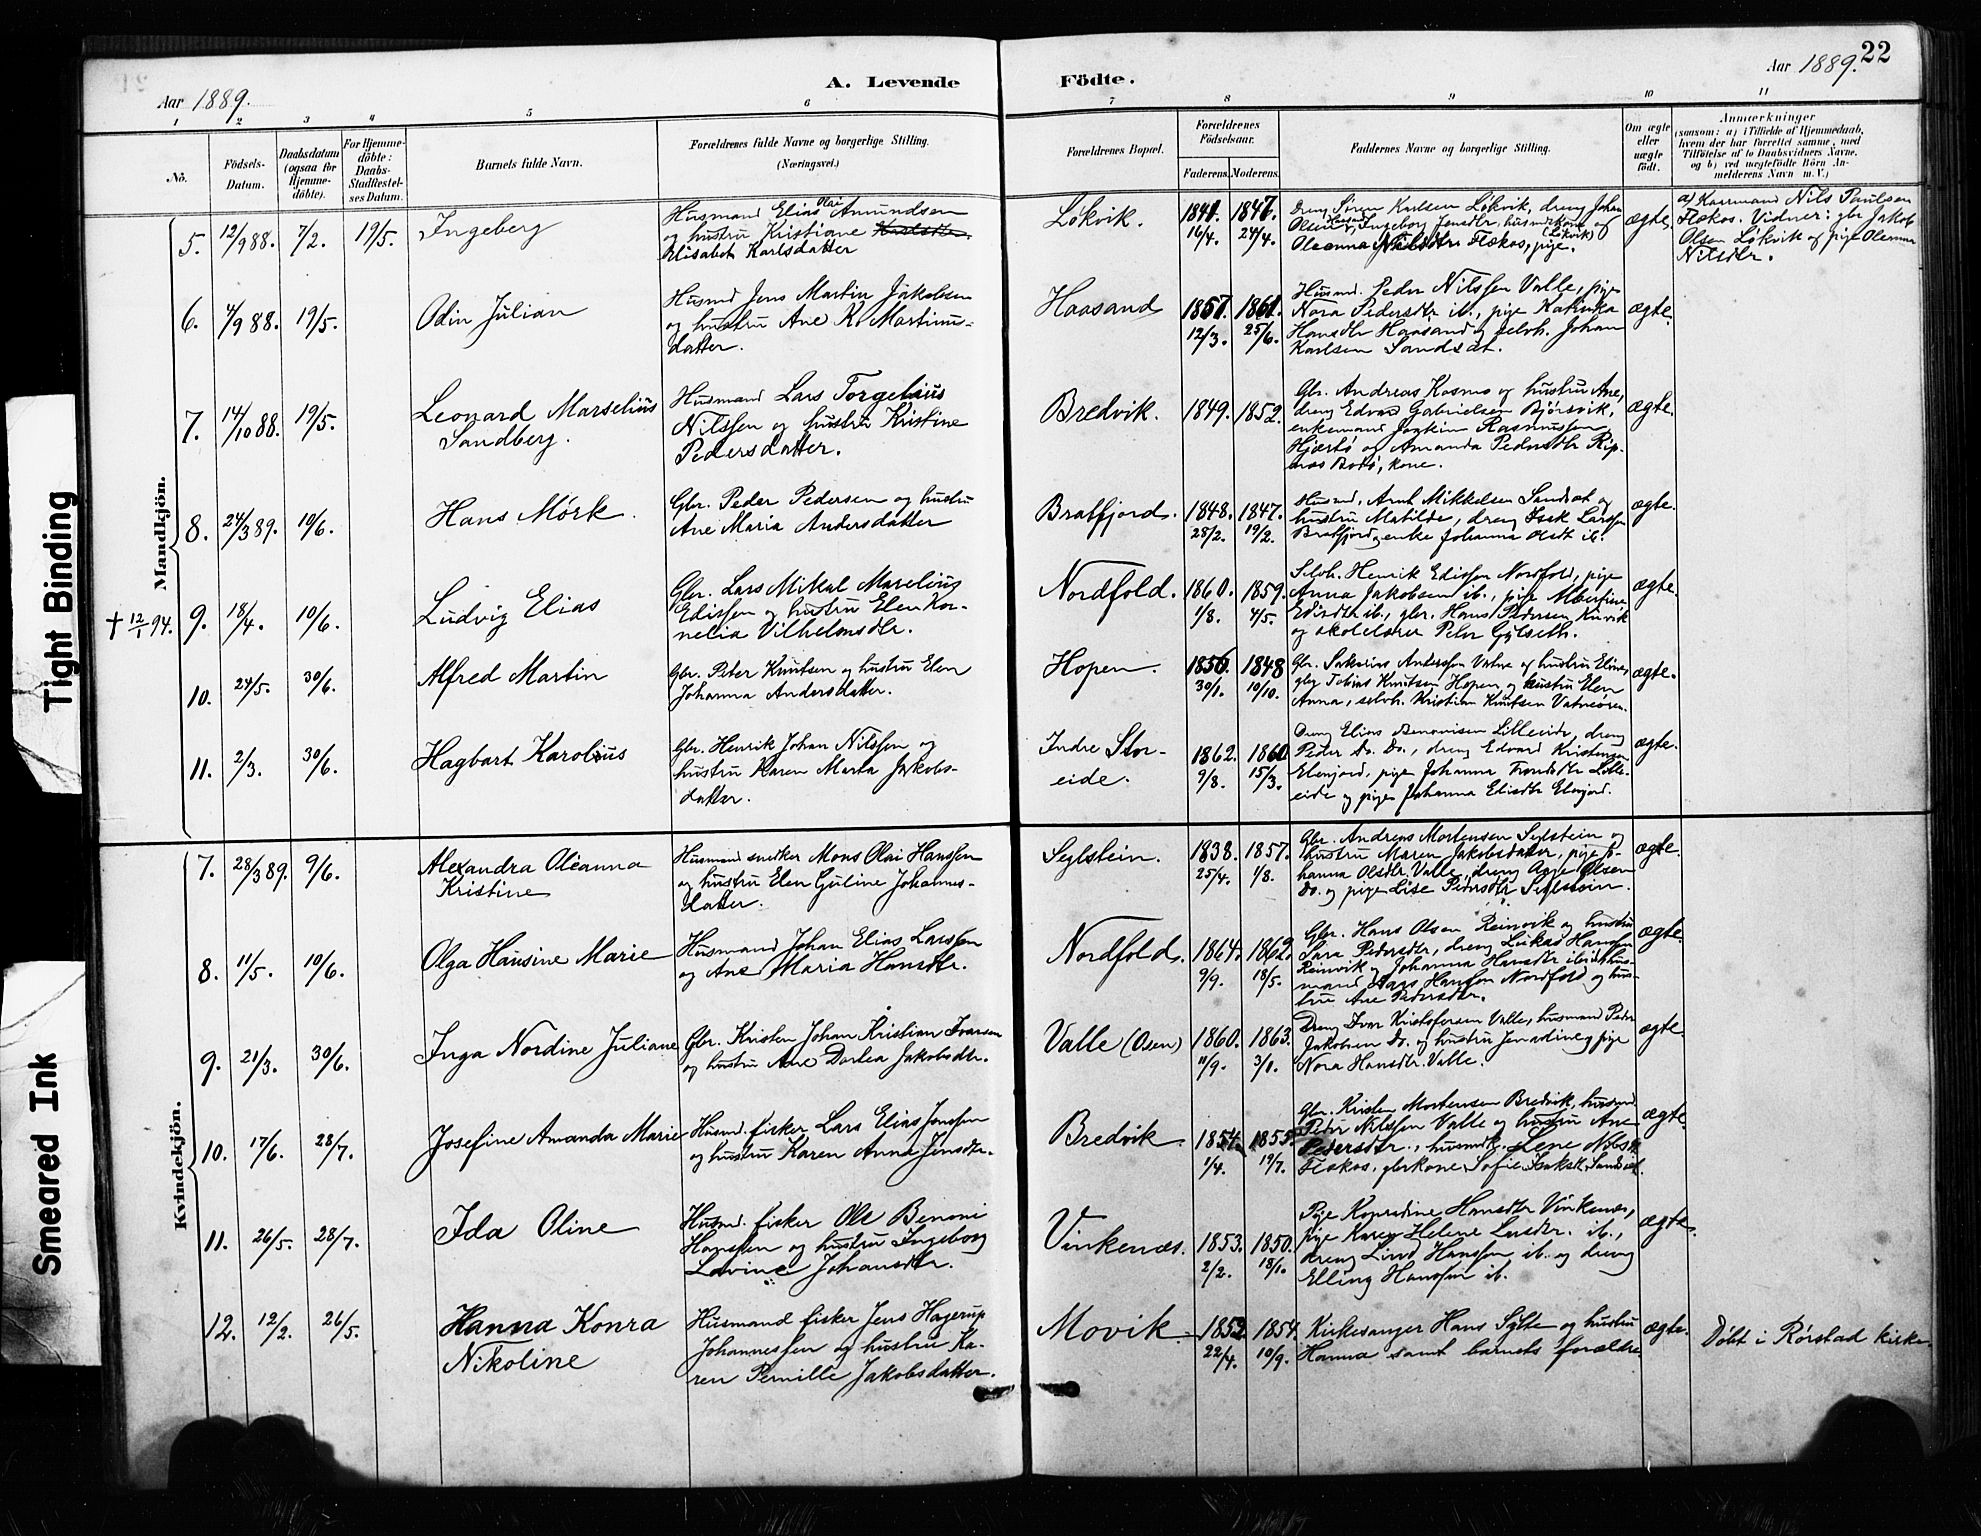 Tight Binding
Smeared Ink
Aar 1889.
A. Levende
Födte.
Aar 1889.
22
1 2 3 4 5 6 7 8 9 10 11
No.
Födsels-
Datum.
Daabsdatum
(ogsaa for
Hjemme-
döbte).
For Hjemme-
döbte:
Daabs-
Stadfæstel-
ses Datum.
Barnets fulde Navn.
Forældrenes fulde Navne og borgerlige Stilling.
(Næringsvei.)
Forældrenes Bopæl.
Forældrenes
Födselsaar.
Faderens. Moderens.
Faddernes Navne og borgerlige Stilling.
Om ægte
eller
uægte
födt.
Anmærkninger
(saasom: a) i Tilfælde af Hjemmedaab,
hvem der har forrettet samme, med
Tilföielse af to Daabsvidners Navne,
og b) ved uægtefödte Börn An-
melderens Navn m. V.)
Mandkjön.
5. 12/9 88. 7/2. 19/5. Ingeberg
Husmand Elias Olai Amundsen
og hustru Kristiane
Elisabet Karlsdatter
Løkvik. 1841. 1847.
16/4. 24/4.
Dreng Sören Karlsen Løkvik, dreng Johan
Oleanna Nilsdtr Flækos, pige.
ægte.
a) Kaarmand Nils Paulsen
Flækos. Vidner: gbr Jakob
Olsen Løkvik og pige Oleanna
Nilsdtr.
6. 4/9 88. 19/5. Odin Julian
Husmd Jens Martin Jakobsen
og hustru Ane K. Martinus-
datter.
Haasand 1857. 1861.
12/3. 25/6.
Husmd. Peder Nilssen Valle, pige
Nora Pedersdtr ib., pige Katinka
Hansdtr Haasand og selvh. Johan
Karlsen Sandsæt.
ægte.
7. 14/10 88. 19/5. Leonard Marselius
Sandberg.
Husmand Lars Torgelaus
Nilssen og hustru Kristine
Pedersdatter.
Bredvik. 1849. 1852.
Gbr. Andreas Kosmo og hustru Ane,
dreng Edvard Gabrielsen Bjørsvik,
enkemand Joakim Rasmussen
Hjærtø og Amanda Pedersdtr Rip-
næs Bodø, kone.
ægte.
8. 24/3 89. 10/6. Hans Mörk.
Gbr. Peder Pedersen og hustru
Ane Maria Andersdatter
Bratfjord. 1848. 1847.
28/2. 19/2.
Husmd. Arnt Mikkelsen Sandsæt og
hustru Matilde, dreng Isak Larssen
Bratfjord, enke Johanna Olsdtr ib.
ægte.
† 12/1 94. 9. 18/4. 10/6. Ludvig Elias
Gbr. Lars Mikal Marelius
Edissen og hustru Elen Kor-
nelia Vilhelmsdtr.
Nordfold. 1860. 1859.
1/8. 4/5.
Selvh. Henrik Edissen Nordfold, pige
Anna Jakobsen ib., pige Albertine
Edisdtr ib., gbr. Hans Pedersen Kirvik
og skolelærer Peter Gylseth.
ægte.
10. 24/5. 30/6. Alfred Martin
Gbr. Peter Knutsen og hustru Elen
Johanna Andersdatter.
Hopen. 1856. 1848
30/1. 10/10.
Gbr. Sakarias Andersen Vatne og hustru Eline,
gbr Tobias Knutsen Hopen og hustru Elen
Anna, selvh. Kristian Knutsen Vatneøren.
ægte.
11. 2/3. 30/6. Hagbart Karolius
Gbr. Henrik Johan Nilssen og
hustru Karen Marta Jakobs-
datter.
Indre Stor-
eide.
1862. 1860
9/8. 15/3.
Dreng Elias Benonisen Lilleeide, dreng
Peder do. do., dreng Edvard Kristensen
Elvnjord, pige Johanna Trondsdtr Lille-
eide og pige Johanna Elisdtr Elvnjord.
ægte.
Kvindekjön.
7. 28/3 89. 9/6. Alexandra Oleanna
Kristine
Husmand snedker Mons Olai Hanssen
og hustru Elen Guline Johannes-
datter.
Seglstein. 1838. 1857.
25/4. 1/8.
Gbr. Andreas Mortensen Seglstein og
hustru Maren Jakobsdatter, pige Jo-
hanna Olsdtr. Valle, dreng Aage Olsen
do. og pige Lise Pedersdtr Seglstein.
ægte.
8. 11/5. 10/6. Olga Hansine Marie
Husmand Johan Elias Larssen
og Ane Maria Hansdtr.
Nordfold. 1864. 1862.
9/9. 18/5.
Gbr. Hans Olsen Reinvik og hustru
Sara Pedersdtr, dreng Lukas Hansen
Reinvik og Johanna Hansdtr ibid., hus-
mand Lars Hanssen Nordfold og hus-
tru Ane Pedersdtr.
ægte.
9. 21/3. 30/6. Inga Nordine Juliane
Gbr. Kristen Johan Kristian Ivarsen
og hustru Ane Dorlea Jakobsdtr.
Valle (Osen) 1860. 1863.
11/9. 3/1.
Dreng Ivar Kristofersen Valle, husmand Peder
Jakobsen do. og hustru Jenadine, pige
Nora Hansdtr. Valle.
ægte.
10. 17/6. 28/7. Josefine Amanda Marie
Husmd. fisker Lars Elias Jonssen
og hustru Karen Anna Jensdtr.
Bredvik. 1854. 1855.
1/4. 19/7.
Gbr. Kristen Mortensen Bredvik, husmd
Peder Nilssen Valle og hustru Ane
Pedersdtr., husmdk. Lene Nilsdtr
Flækos, gbrkone Sofie Isaksdtr. Sandsæt.
ægte.
11. 26/5. 28/7. Ida Oline
Husmd. fisker Ole Benoni
Hanssen og hustru Ingeborg
Lovine Johansdtr.
Vinkenæs. 1853. 1850.
2/2. 18/1.
Pige Konradine Hansdtr Vinkenæs,
pige Karen Helene Larsdtr. ib.,
dreng Lind Hanssen ib. og dreng
Elling Hanssen ib.
ægte.
12. 12/2. 26/5. Hanna Konra
Nikoline
Husmand fisker Jens Hagerup
Johannessen og hustru Ka-
ren Pernille Jakobsdatter.
Movik. 1853 1854.
22/4. 10/9.
Kirkesanger Hans Sylte og hustru
Hanna samt barnets forældre.
ægte.
Döbt i Rörstad kirke.